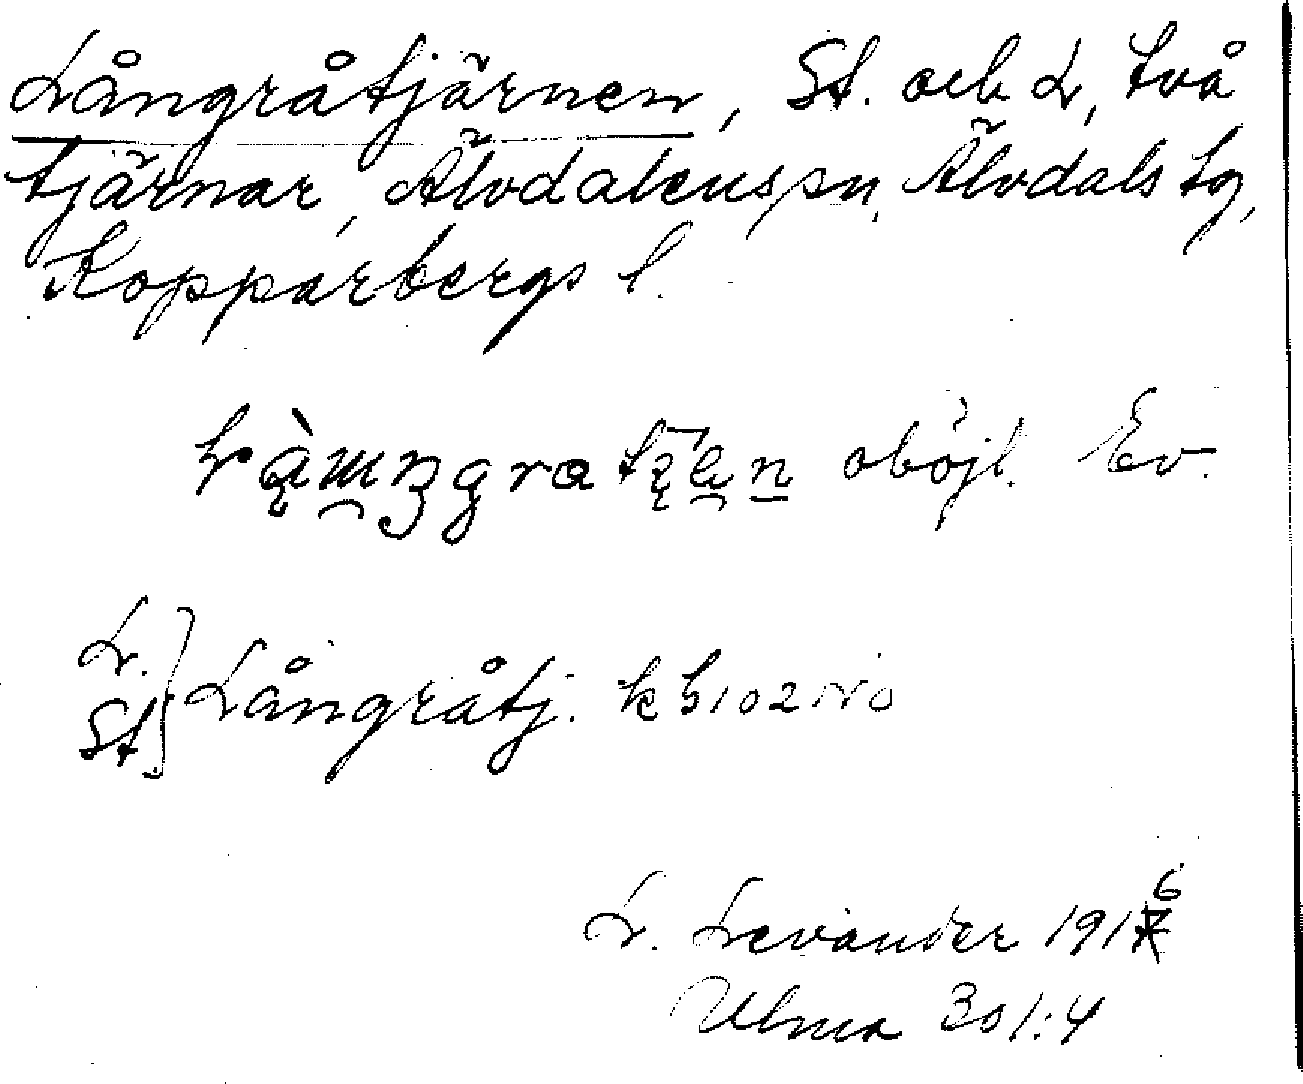 Långråtjärnen, St. och L, två
tjärnar, Älvdalens sn, Älvdals tg,
Kopparbergs l.
oböjl. Ev.
L.
St. } Långråtj. kb 102 NO
L. Levander 1916
Ulma 301:4